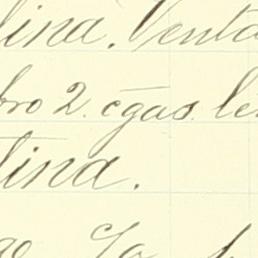 lina. Venta
bro 2. cgas. le
lina.